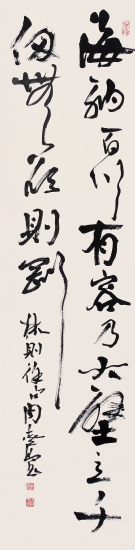 海納百川有容乃大壁立千
仞無欲則剛
林則徐句